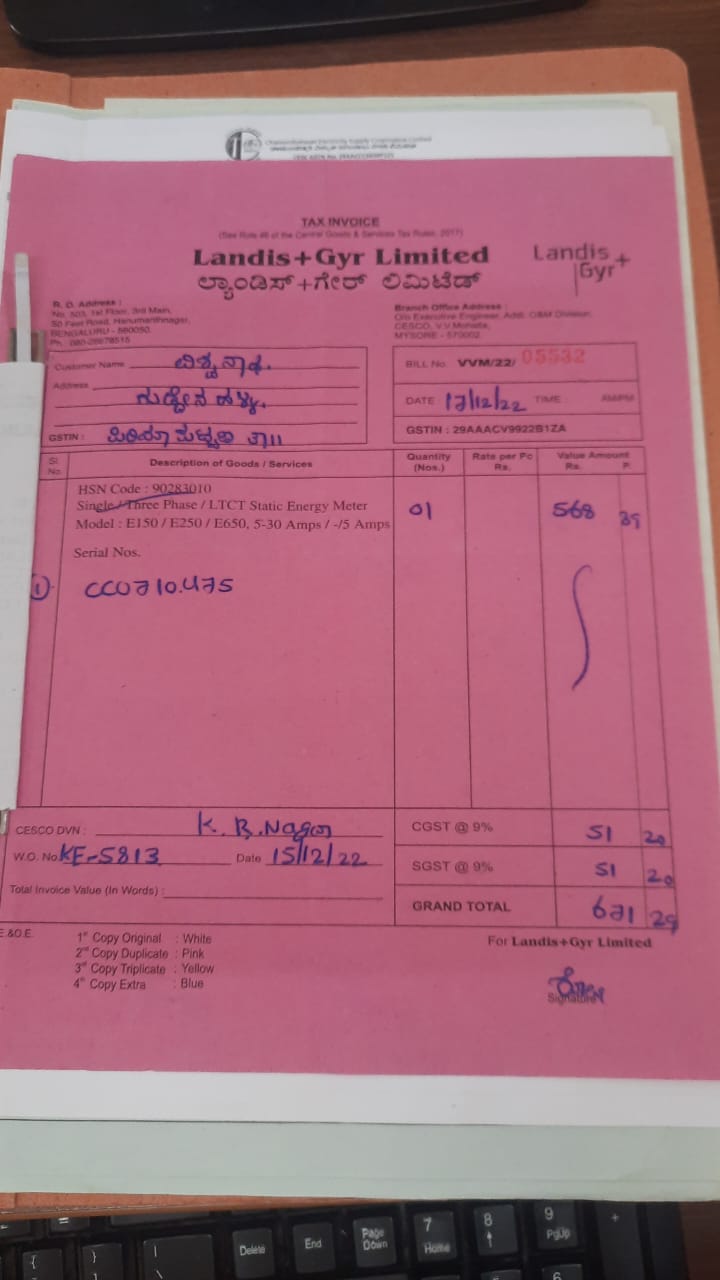 Chamundeshwari Electricity Supply Corporation Limited
TAX INVOICE
(See Rule 46 of the Central Goods & Services Tax Rules, 2017)
Landis+Gyr Limited
ಲ್ಯಾಂಡಿಸ್+ಗೇರ್ ಲಿಮಿಟೆಡ್
Landis+
Gyr
R. O. Address :
No. 503, 1st Floor, 3rd Main,
50 Feet Road, Hanumanthnagar,
BENGALURU - 560050.
Ph. 080-26678515
Branch Office Address :
O/o Executive Engineer, Addl. O&M Division,
CESCO, V.V.Mohalla,
MYSORE - 570002
Customer Name ವಿಶ್ವನಾಥ.
Address
GSTIN :
BILL No. VVM/22/ 05532
DATE 17/12/22 TIME : AM/PM
GSTIN : 29AAACV9922B1ZA
Sl. No.
Description of Goods / Services
Quantity (Nos.)
Rate per Pc Rs.
Value Amount Rs. P.
HSN Code : 90283010
Single / Three Phase / LTCT Static Energy Meter 01 568 89
Model : E150 / E250 / E650, 5-30 Amps / -/5 Amps
Serial Nos.
1) CC0710475
CESCO DVN : K. R. Nagar
W.O. No. KE-5813 Date 15/12/22
Total Invoice Value (In Words) :
CGST @ 9% 51 20
SGST @ 9% 51 20
GRAND TOTAL 671 29
E.&O.E.
1st Copy Original : White
2nd Copy Duplicate : Pink
3rd Copy Triplicate : Yellow
4th Copy Extra : Blue
For Landis+Gyr Limited
Signature
{
}
|
=
Delete
End
Page Down
7 Home
8
9 PgUp
+
6